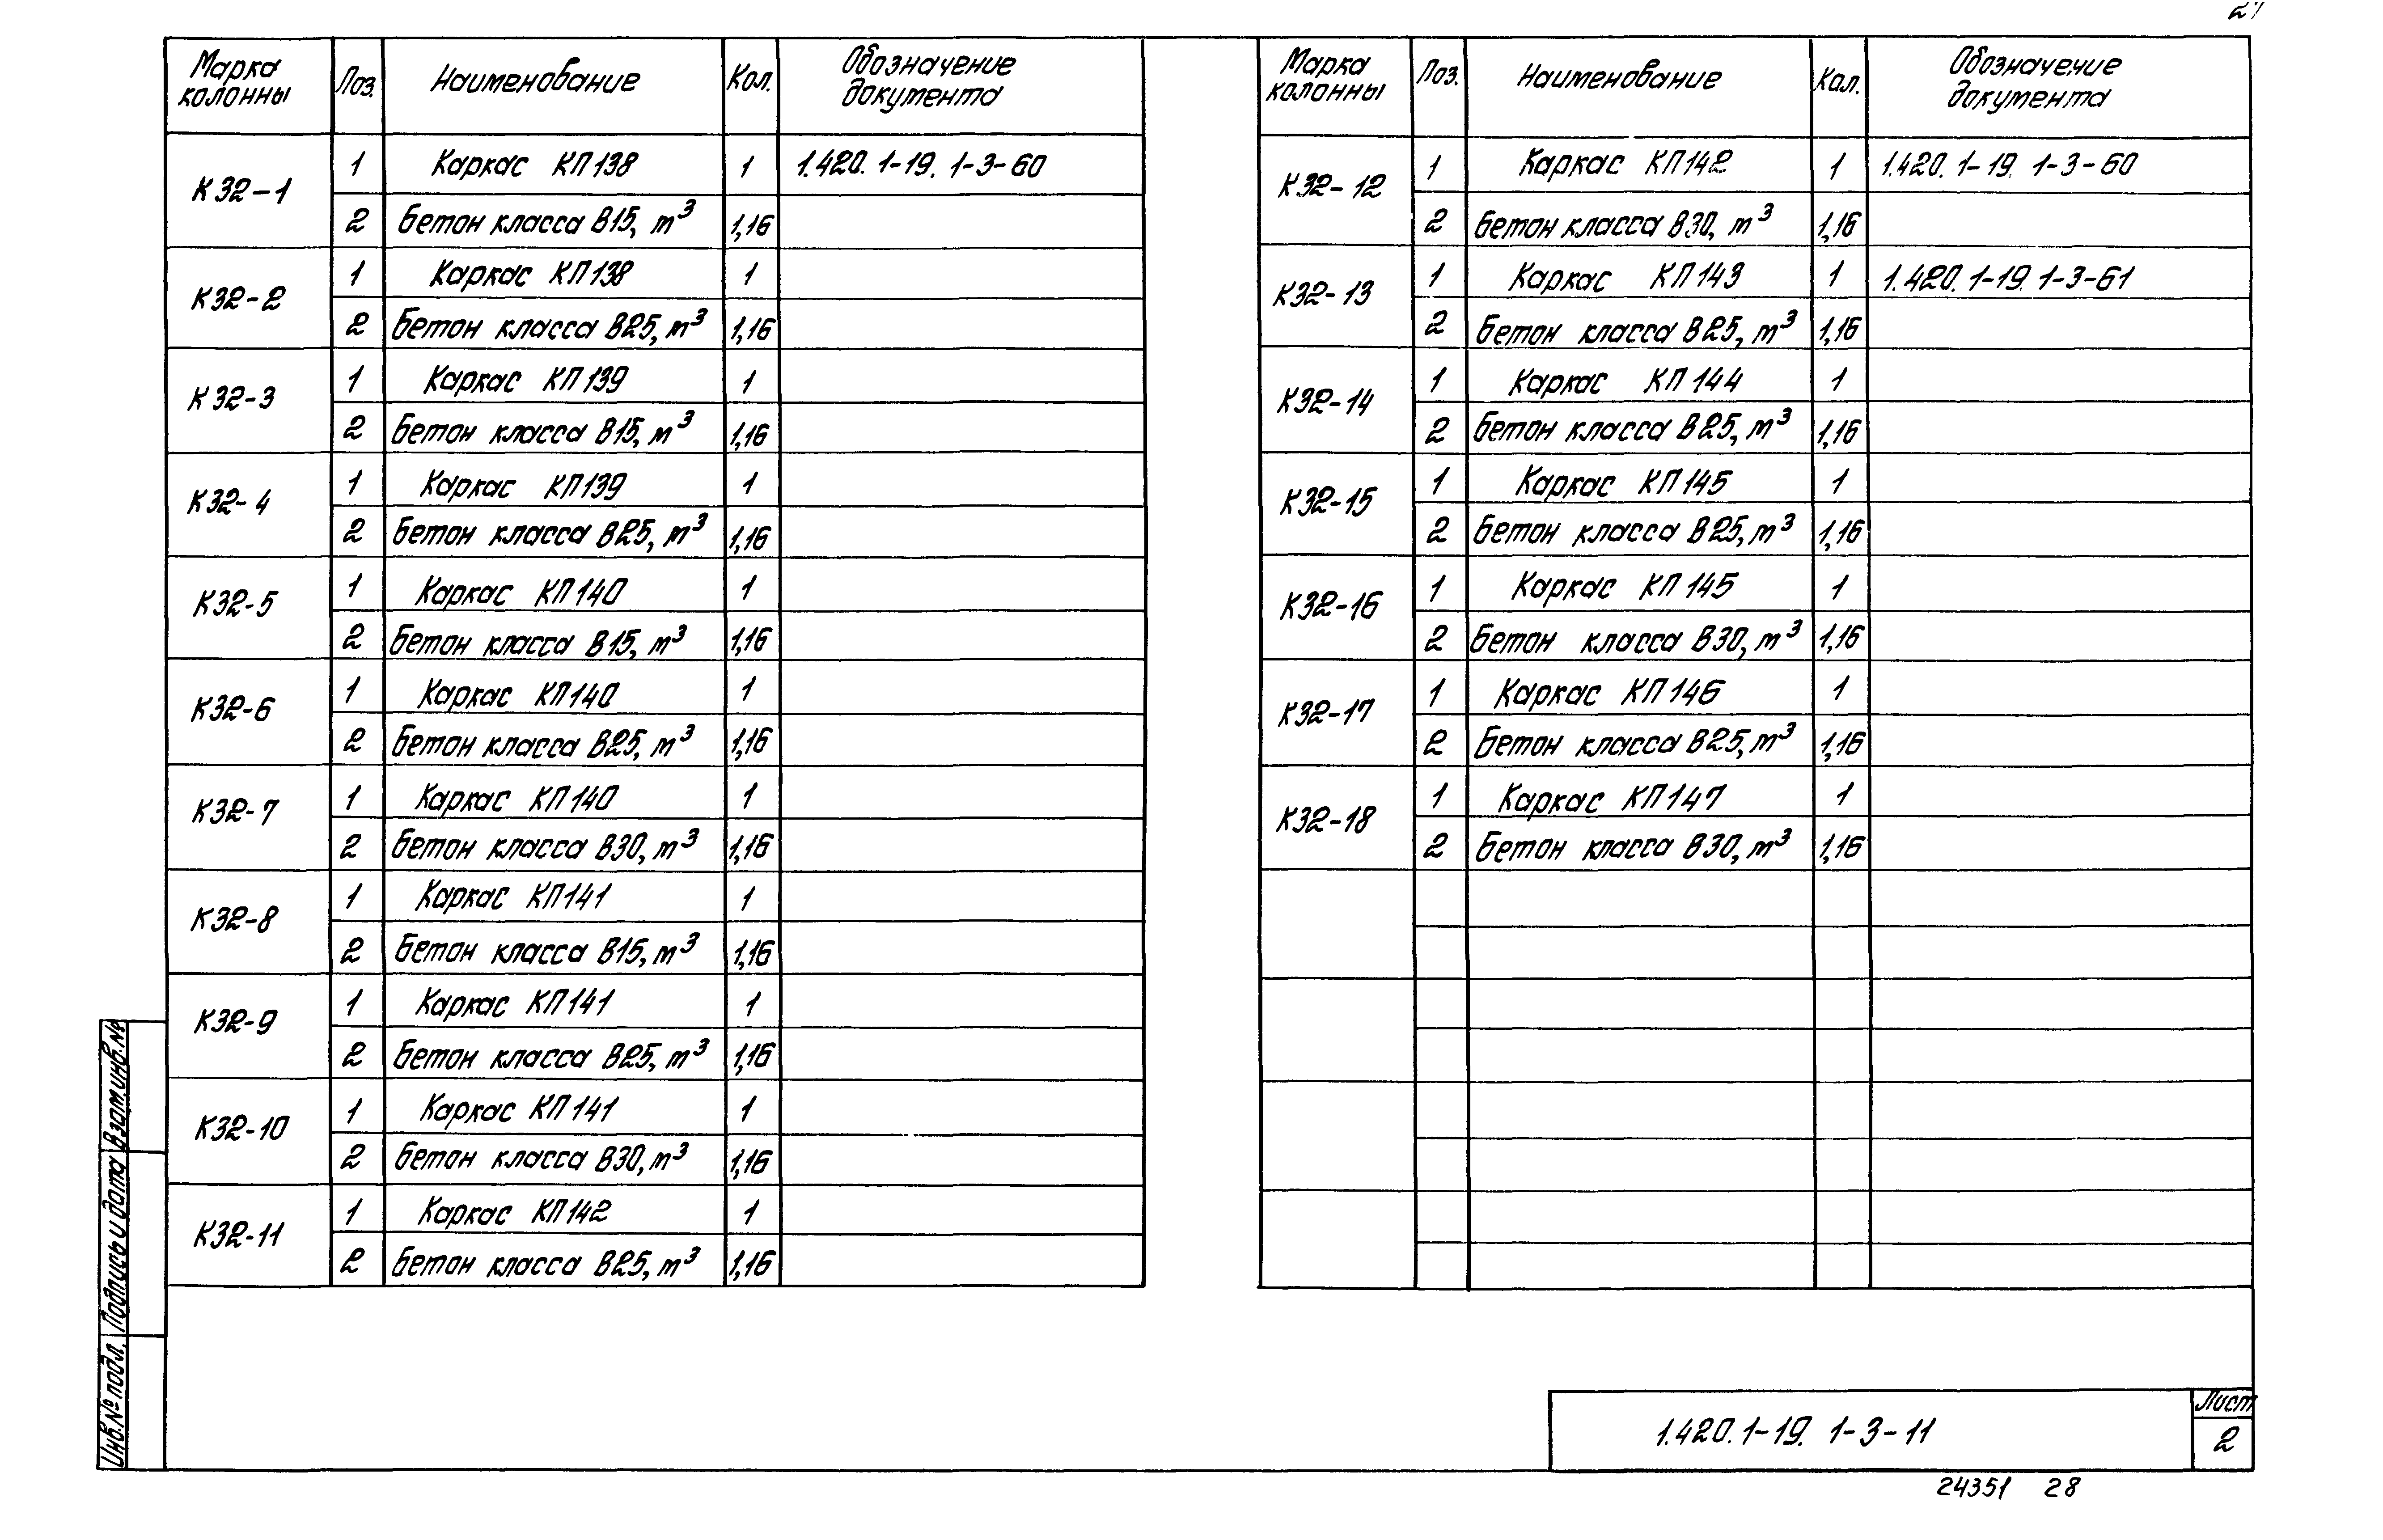 Марка колонны Поз. Наименование Кол. Обозначение документа
К32-1 1 Каркас КП138 1 1.420.1-19. 1-3-60
2 Бетон класса В15, м³ 1,16
К32-2 1 Каркас КП138 1
2 Бетон класса В25, м³ 1,16
К32-3 1 Каркас КП139 1
2 Бетон класса В15, м³ 1,16
К32-4 1 Каркас КП139 1
2 Бетон класса В25, м³ 1,16
К32-5 1 Каркас КП140 1
2 Бетон класса В15, м³ 1,16
К32-6 1 Каркас КП140 1
2 Бетон класса В25, м³ 1,16
К32-7 1 Каркас КП140 1
2 Бетон класса В30, м³ 1,16
К32-8 1 Каркас КП141 1
2 Бетон класса В15, м³ 1,16
К32-9 1 Каркас КП141 1
2 Бетон класса В25, м³ 1,16
К32-10 1 Каркас КП141 1
2 Бетон класса В30, м³ 1,16
К32-11 1 Каркас КП142 1
2 Бетон класса В25, м³ 1,16
Марка колонны Поз. Наименование Кол. Обозначение документа
К32-12 1 Каркас КП142 1 1.420.1-19. 1-3-60
2 Бетон класса В30, м³ 1,16
К32-13 1 Каркас КП143 1 1.420.1-19. 1-3-61
2 Бетон класса В25, м³ 1,16
К32-14 1 Каркас КП144 1
2 Бетон класса В25, м³ 1,16
К32-15 1 Каркас КП145 1
2 Бетон класса В25, м³ 1,16
К32-16 1 Каркас КП145 1
2 Бетон класса В30, м³ 1,16
К32-17 1 Каркас КП146 1
2 Бетон класса В25, м³ 1,16
К32-18 1 Каркас КП147 1
2 Бетон класса В30, м³ 1,16
Инв.№ подл. Подпись и дата Взам.инв.№
1.420.1-19. 1-3-11
Лист
2
24351 28